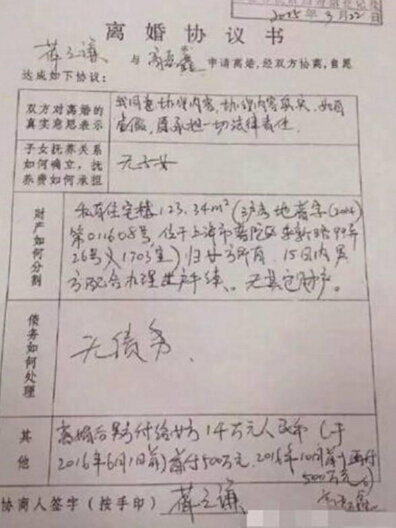 2015年9月22日
离婚协议书
薛之谦 与 高磊鑫 申请离婚，经双方协商，自愿
达成如下协议：
双方对离婚的
真实意思表示
我同意协议内容，协议内容属实，如有
虚假，愿承担一切法律责任
子女抚养关系
如何确立，抚
养费如何承担
无子女
财产如何分割
私有住宅楼123.34m²（沪房地普字(2006)
第011608号，位于上海市普陀区
26号 1703室）归女方所有，15日内男
方配合办理过户手续。无其它财产。
债务如何处理
无债务
其他
离婚后男方付给女方1千万元人民币（于
2016年6月1日前）首付500万元，2016年10月前再付
500万元
协商人签字（按手印） 薛之谦 高磊鑫